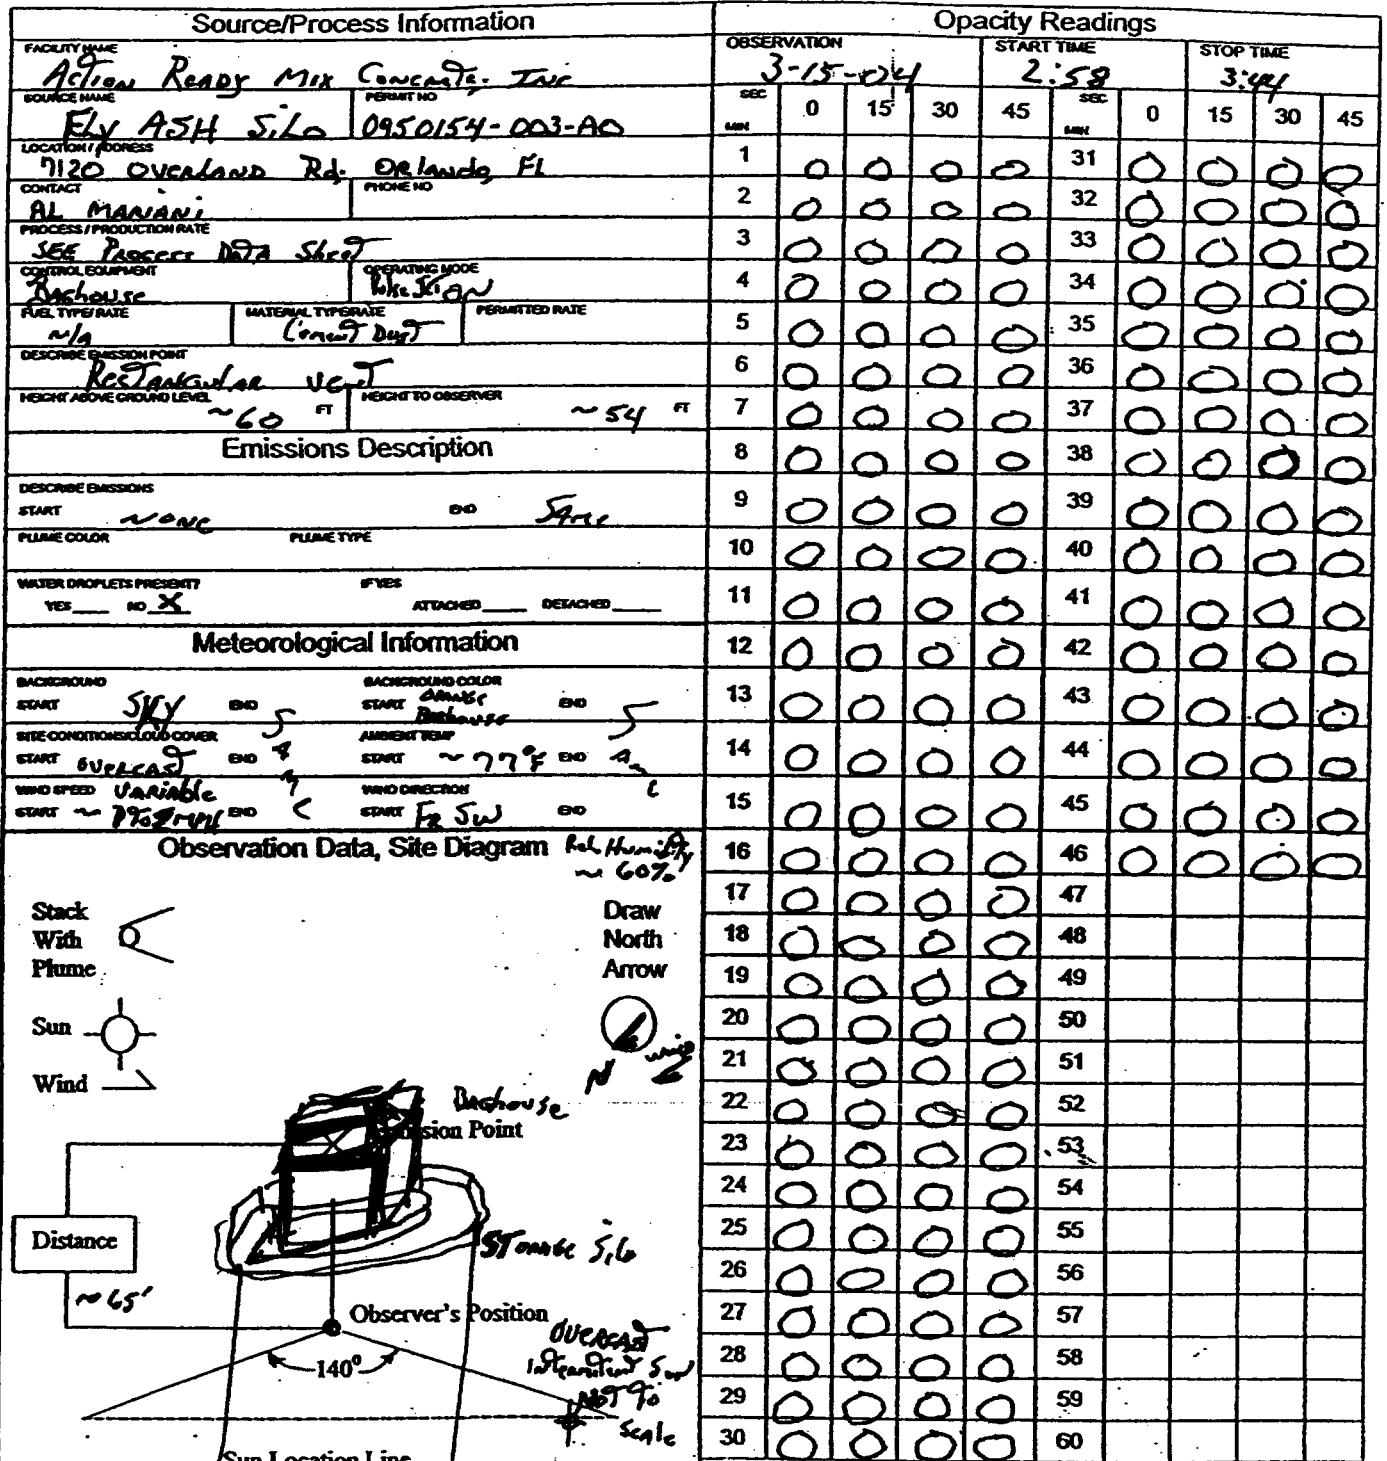 Source/Process Information
FACILITY NAME
Action Ready Mix Concrete. Inc
SOURCE NAME PERMIT NO
Fly ASH Silo 0950154-003-AO
LOCATION / ADDRESS
7120 Overland Rd. Orlando, FL
CONTACT PHONE NO
AL MARIANI
PROCESS / PRODUCTION RATE
SEE Process Data Sheet
CONTROL EQUIPMENT OPERATING MODE
Baghouse
FUEL TYPE/RATE MATERIAL TYPE/RATE PERMITTED RATE
N/A Cement Dust
DESCRIBE EMISSION POINT
Rectangular vent
HEIGHT ABOVE GROUND LEVEL ~60 FT HEIGHT TO OBSERVER ~54 FT
Emissions Description
DESCRIBE EMISSIONS
START None END Same
PLUME COLOR PLUME TYPE
WATER DROPLETS PRESENT? IF YES
YES ____ NO X ATTACHED ____ DETACHED ____
Meteorological Information
BACKGROUND BACKGROUND COLOR
START Sky END START Orange Baghouse END
SITE CONDITIONS/CLOUD COVER AMBIENT TEMP
START overcast END START ~77°F END
Same
Same
WIND SPEED Variable WIND DIRECTION
START END START Fr SW END
Observation Data, Site Diagram Rel. Humidity
~ 60%
Stack
With
Plume
Sun
Wind
Draw
North
Arrow
N wind
Baghouse
sion Point
Storage Silo
Distance
~65'
Observer's Position
140°
Overcast
Intermittent Sun
Not To
Scale
Sun Location Line
Opacity Readings
OBSERVATION START TIME STOP TIME
3-15-04 2:58 3:44
SEC 0 15 30 45 SEC 0 15 30 45
MIN MIN
1 0 0 0 0 31 0 0 0 0
2 0 0 0 0 32 0 0 0 0
3 0 0 0 0 33 0 0 0 0
4 0 0 0 0 34 0 0 0 0
5 0 0 0 0 35 0 0 0 0
6 0 0 0 0 36 0 0 0 0
7 0 0 0 0 37 0 0 0 0
8 0 0 0 0 38 0 0 0 0
9 0 0 0 0 39 0 0 0 0
10 0 0 0 0 40 0 0 0 0
11 0 0 0 0 41 0 0 0 0
12 0 0 0 0 42 0 0 0 0
13 0 0 0 0 43 0 0 0 0
14 0 0 0 0 44 0 0 0 0
15 0 0 0 0 45 0 0 0 0
16 0 0 0 0 46 0 0 0 0
17 0 0 0 0 47
18 0 0 0 0 48
19 0 0 0 0 49
20 0 0 0 0 50
21 0 0 0 0 51
22 0 0 0 0 52
23 0 0 0 0 53
24 0 0 0 0 54
25 0 0 0 0 55
26 0 0 0 0 56
27 0 0 0 0 57
28 0 0 0 0 58
29 0 0 0 0 59
30 0 0 0 0 60